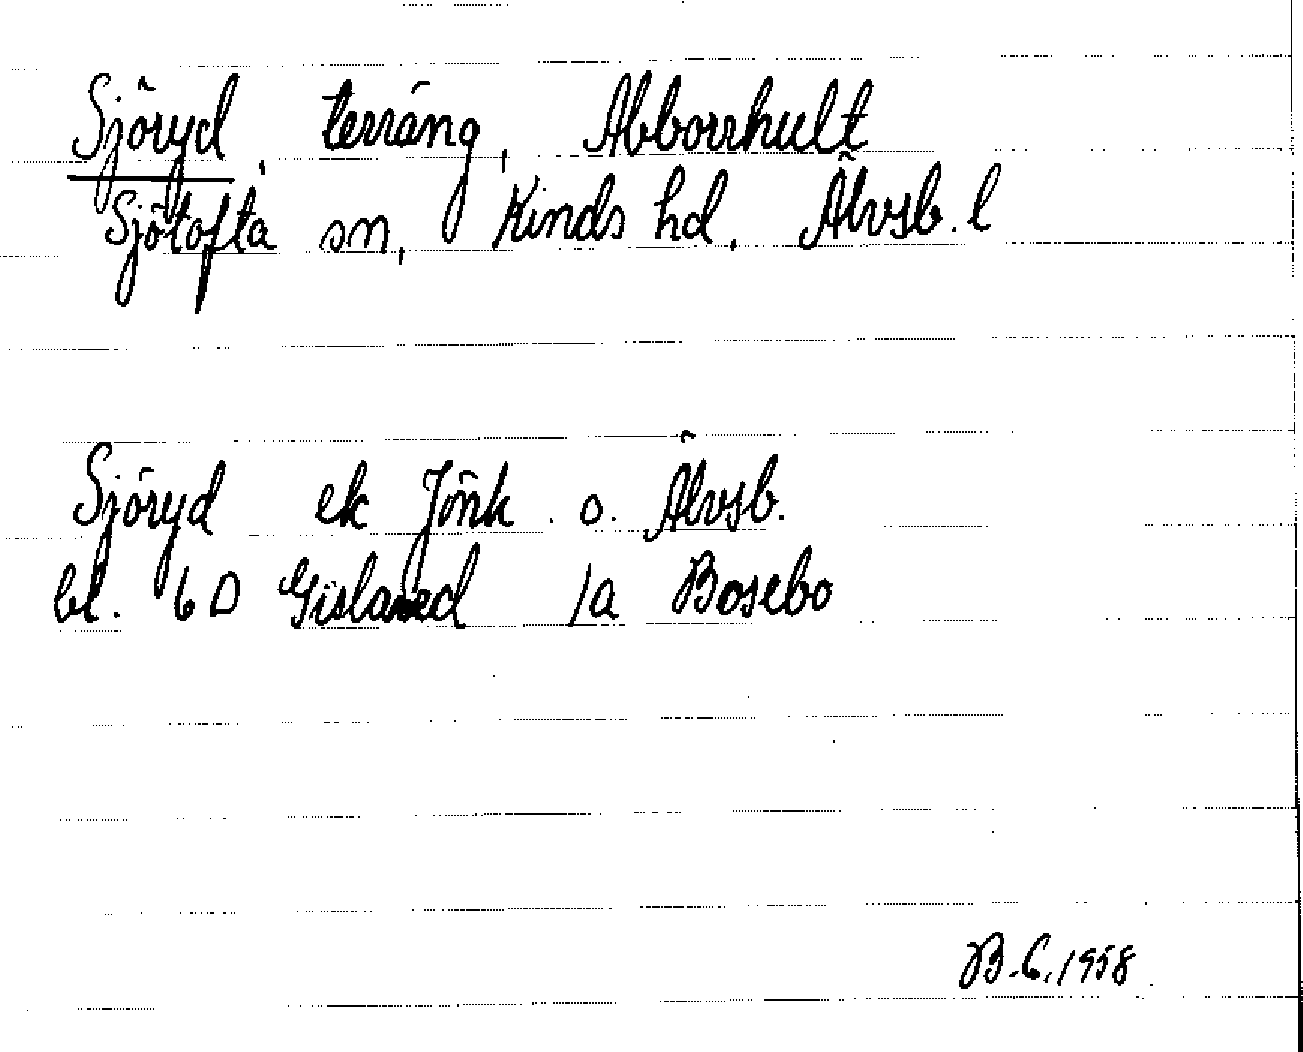 Sjöryd, terräng, Abborrhult
Sjötofta sn, Kinds hd. Älvsb. l
Sjöryd ek Jönk. o. Älvsb.
bl. 6 D Gislaved 1a Bosebo
B.G. 1958